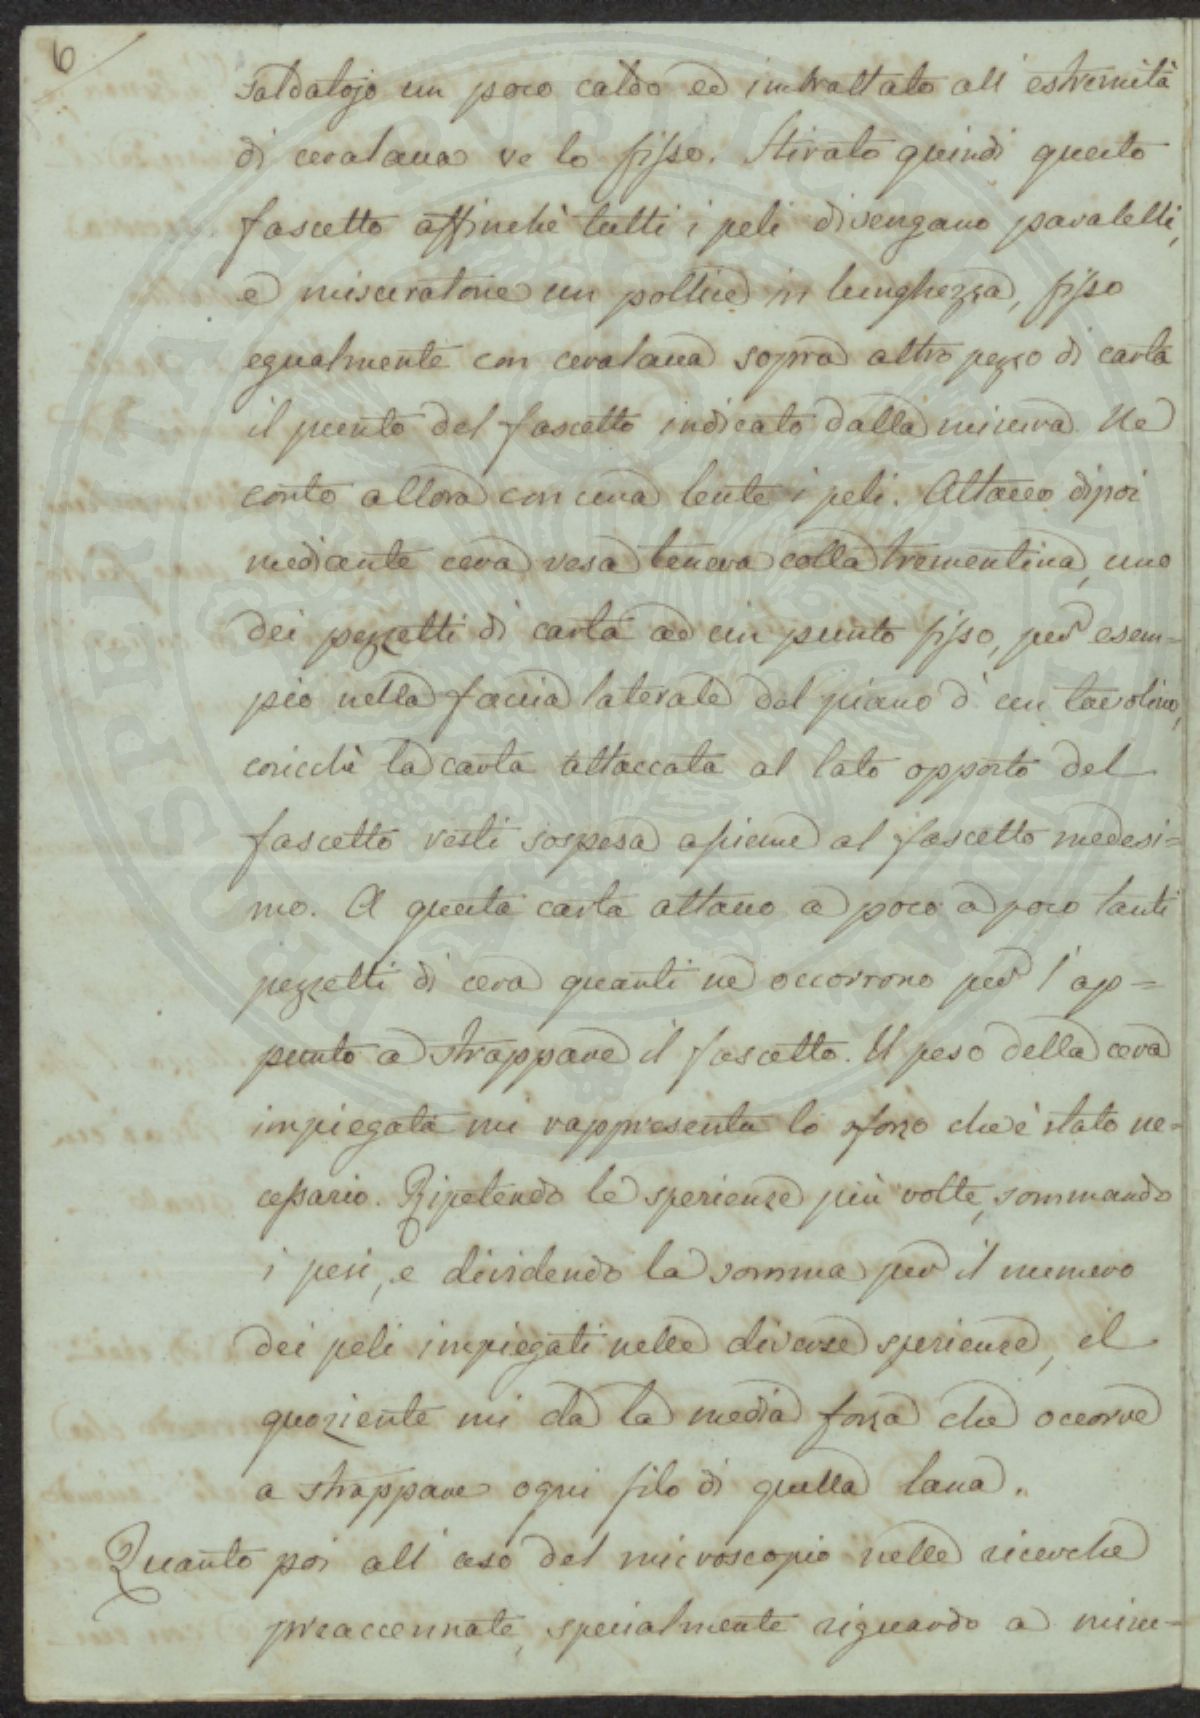 6
saldatojo un poco caldo ed imbrattato all' estremità
di ceralacca ve lo fisso. Stirato quindi questo
fascetto affinchè tutti i peli divengano paralelli,
e misuratone un pollice in lunghezza, fisso
egualmente con ceralacca sopra altro pezzo di carta
il punto del fascetto indicato dalla misura. Ne
conto allora con una lente i peli. Attacco dipoi
mediante cera resa tenera colla trementina, uno
dei pezzetti di carta ad un punto fisso, per esem=
pio nella faccia laterale del piano d' un tavolino,
cosicchè la carta attaccata al lato opposto del
fascetto resti sospesa assieme al fascetto medesi=
mo. A questa carta attacco a poco a poco tanti
pezzetti di cera quanti ne occorrono per l' ap=
punto a strappare il fascetto. Il peso della cera
impiegata mi rappresenta lo sforzo che è stato ne=
cessario. Ripetendo le sperienze più volte, sommando
i pesi, e dividendo la somma per il numero
dei peli impiegati nelle diverse sperienze, il
quoziente mi dà la media forza che occorre
a strappare ogni filo di quella lana.
Quanto poi all' uso del microscopio nelle ricerche
preaccennate, specialmente riguardo a misu=
PROSPERITATI PUBLICAE AUGENDAE